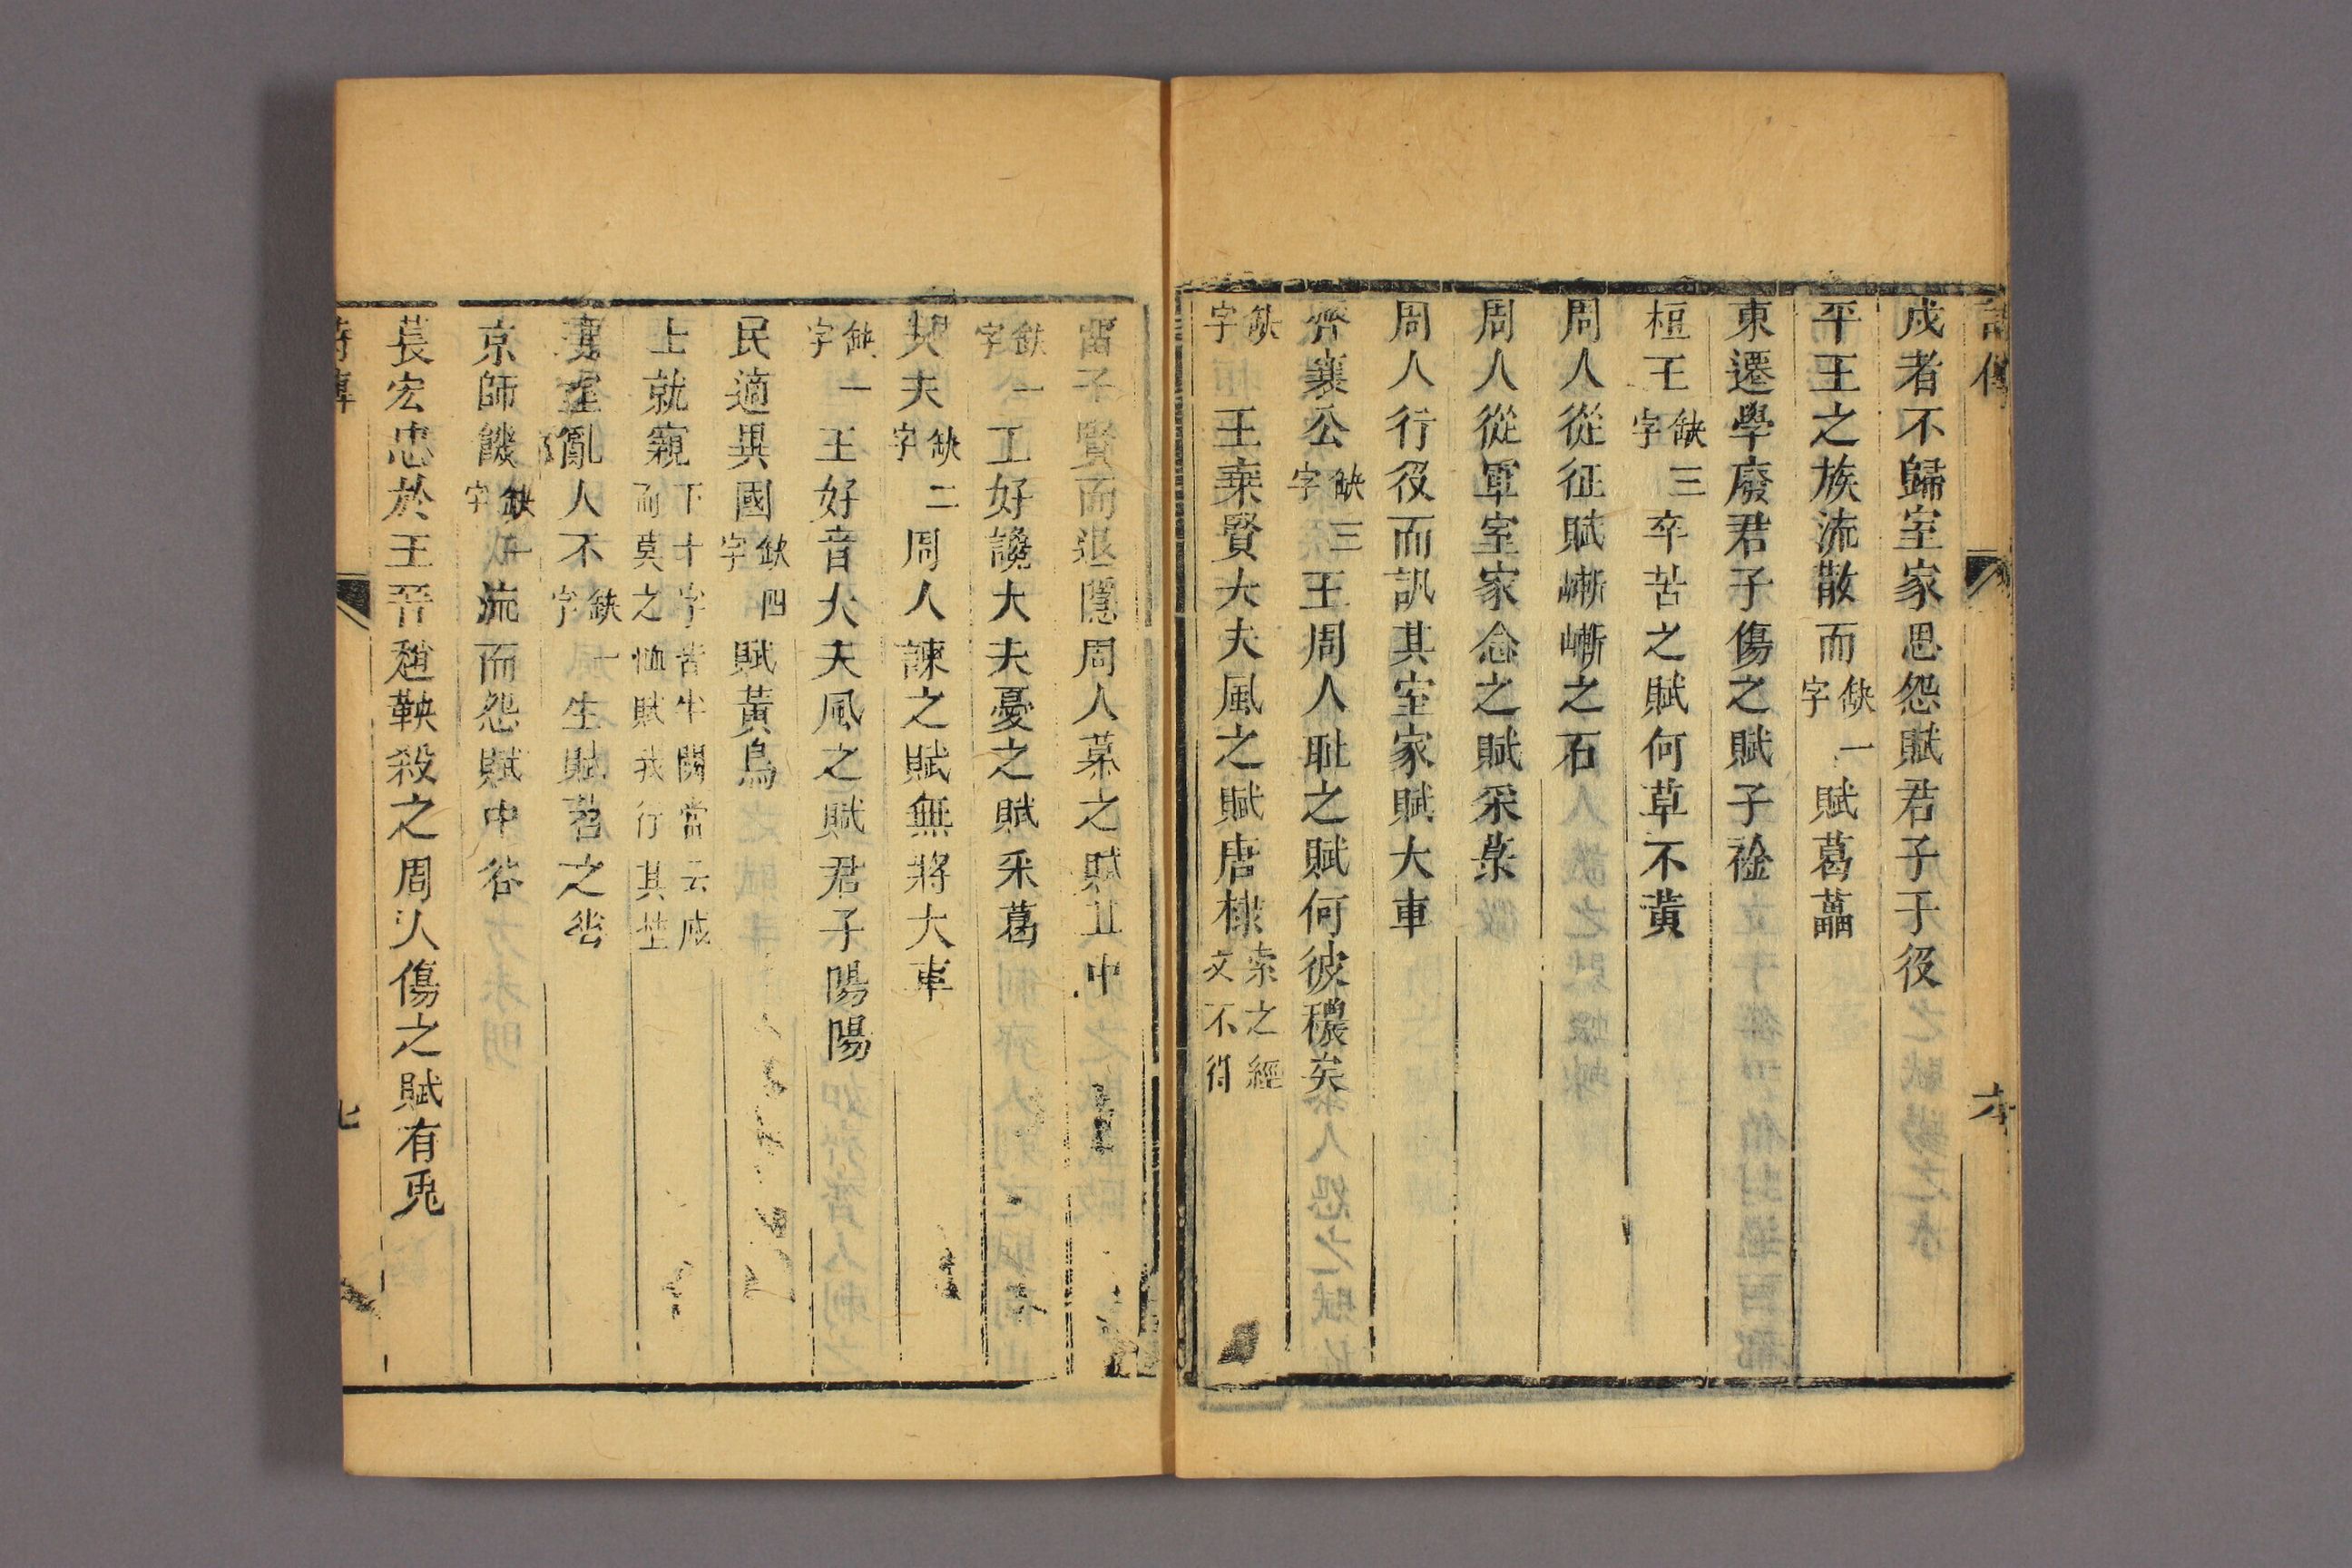 詩傳
六
戍者不歸室家思怨賦君子于役
平王之族流散而缺一字賦葛藟
東遷學廢君子傷之賦子衿
桓王缺三字卒苦之賦何草不黃
周人從征賦嶃嶃之石
周人從軍室家念之賦采菉
周人行役而訊其室家賦大車
齊襄公缺三字王周人耻之賦何彼穠矣
缺字王棄賢大夫風之賦唐棣索之經文不得
留子賢而退隱周人慕之賦丘中
缺一字王好讒大夫憂之賦采葛
大夫缺二字周人諫之賦無將大車
缺一字王好音大夫風之賦君子陽陽
民適異國缺四字賦黃鳥
上就窺下十字皆半闕當云戚而莫之恤賦我行其埜
室亂人不缺一字生賦苕之華
京師饑缺一字流而怨賦中谷
萇宏忠於王晉趙鞅殺之周人傷之賦有兎
詩傳
七